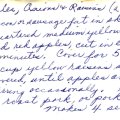 les, Onions & Raisins (a
on or sausage fat in sk
uartered medium yellow
d red apples, cut in
minutes. Cover for 5
cup yellow raisins
vered, until apples a
ring occasionally.
roast pork, or pork
Makes 4 se